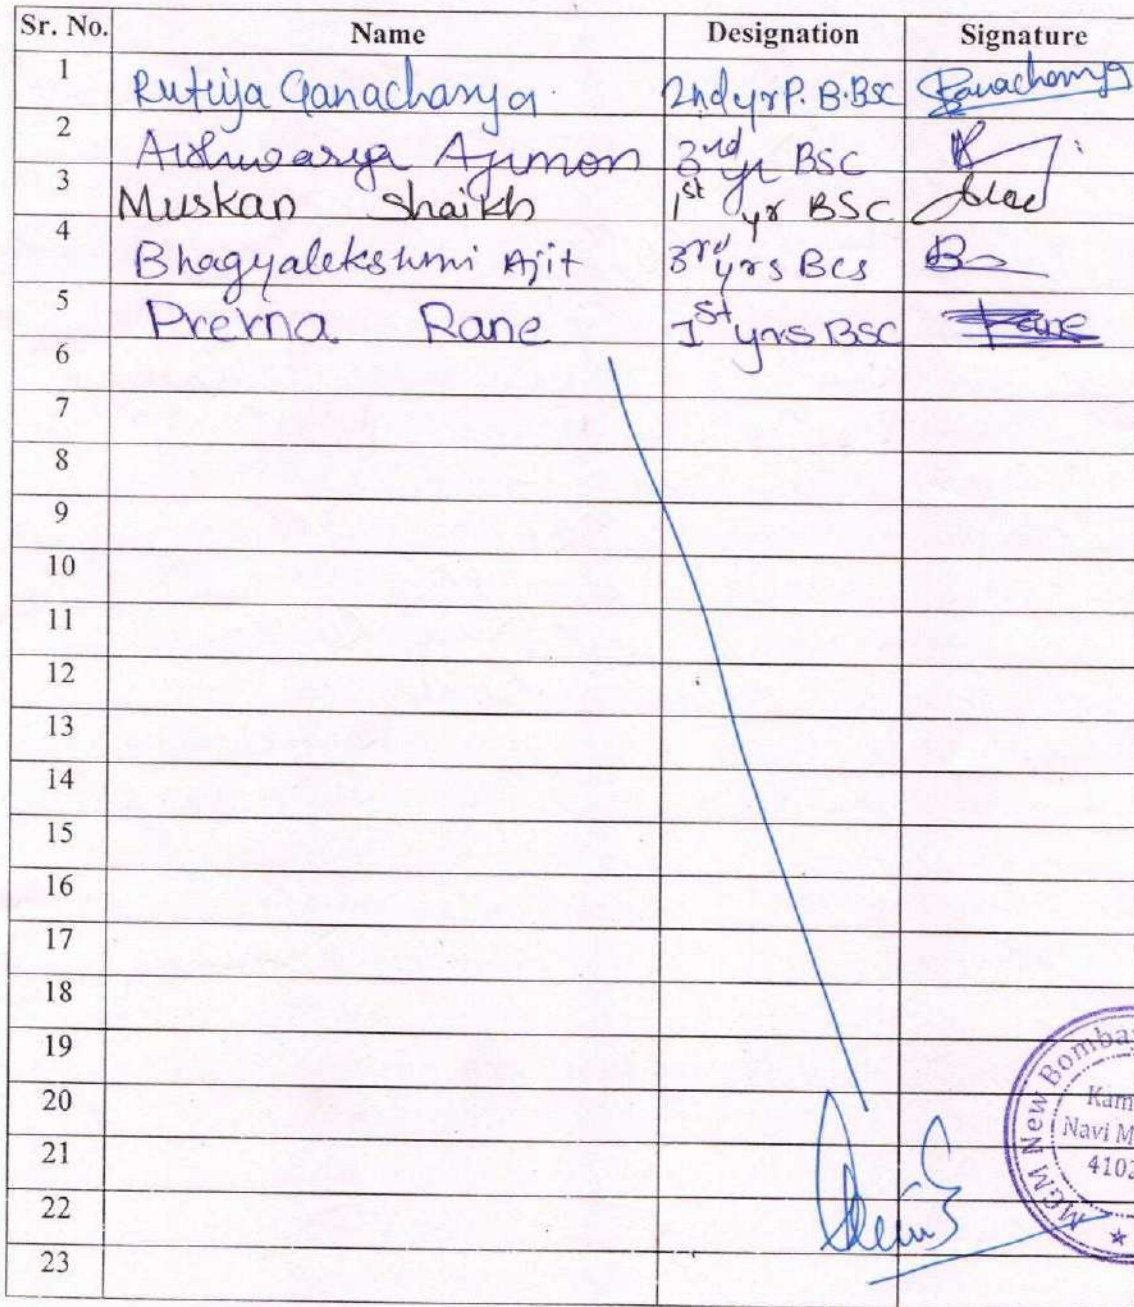 Sr. No. Name Designation Signature
1 Rutuja Ganacharya. 2nd yr P. B. BSC Ganacharya
2 Aishwarya Ajimon 3rd yr BSC
3 Muskan Shaikh 1st yr BSC
4 Bhagyalekshmi Ajit 3rd yrs BCS B
5 Prerna Rane 1st yrs BSC Rane
6
7
8
9
10
11
12
13
14
15
16
17
18
19
20
21
22
23
MGM New Bombay
Kam
Navi M
4102